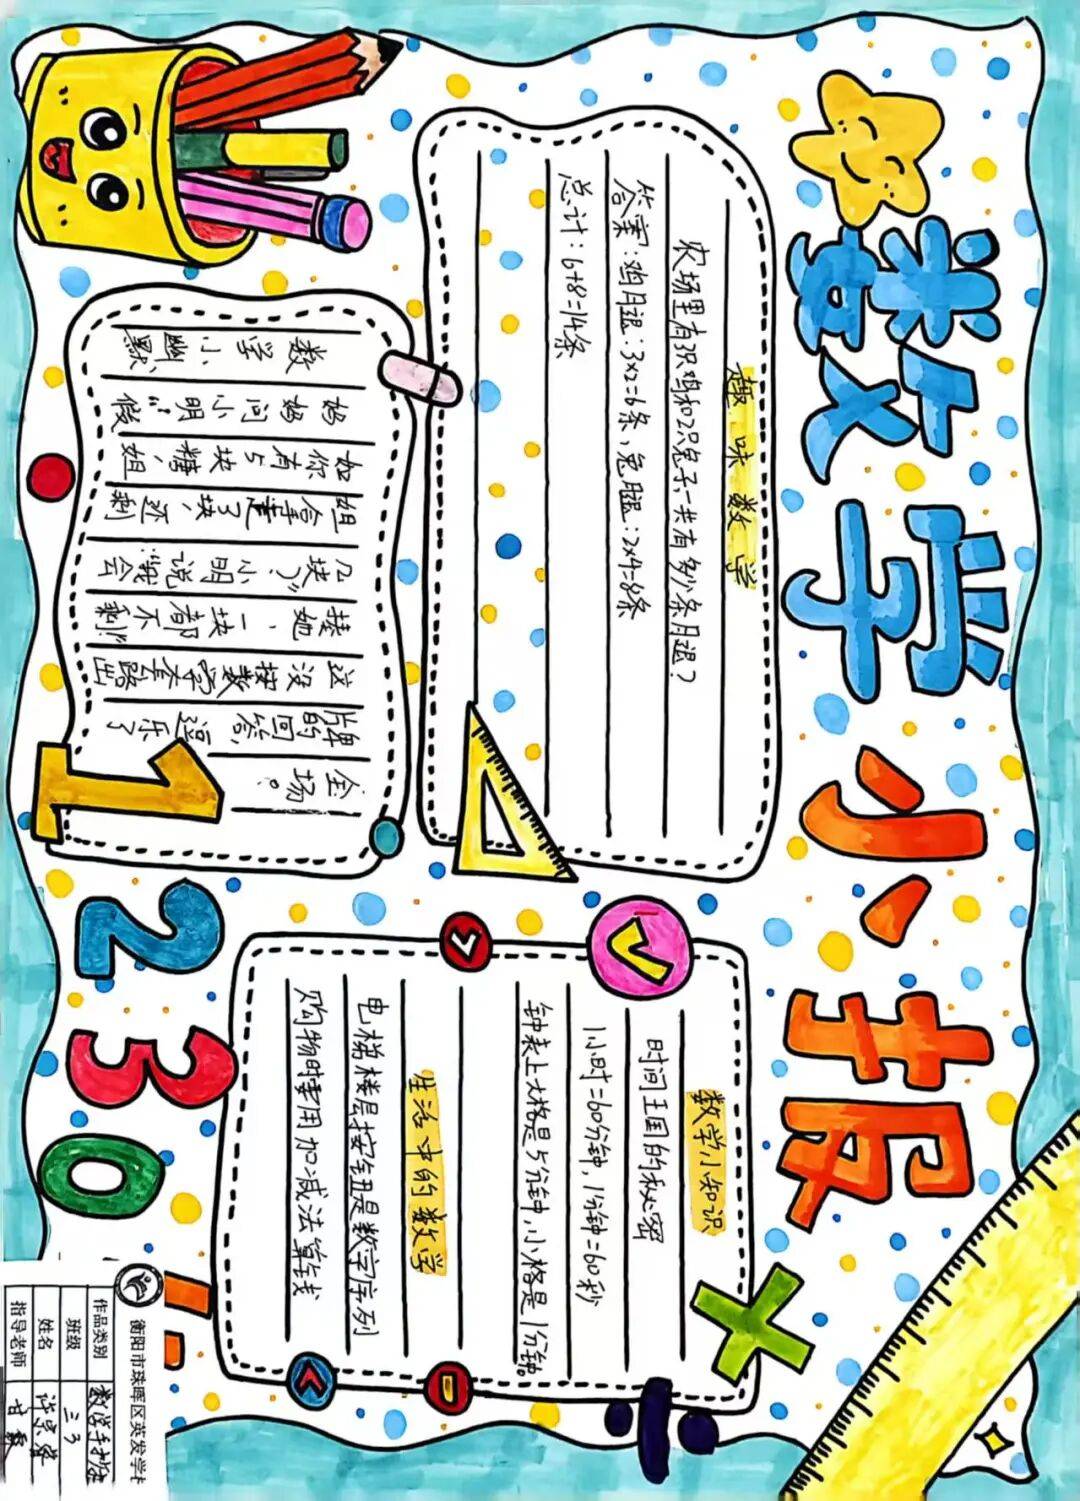 数学小报
趣味数学
农场里有3只鸡和2只兔子,一共有多少条腿?
答案:鸡腿:3×2=6条,兔腿:2×4=8条
总计:6+8=14条
数学小幽默
妈妈问小明:“假
如你有5块糖,姐
姐拿走3块,还剩
几块?”小明说:“我会
揍她,一块都不剩!”
这没按数学套路出
牌的回答,逗乐了
全场。
数学小知识
时间王国的秘密
1小时=60分钟,1分钟=60秒
钟表上大格是5分钟,小格是1分钟。
生活中的数学
电梯楼层按钮是数字序列
购物时要用加减法算钱
1 2 3 0
衡阳市珠晖区英发学
作品类别 数学手抄报
班级 三3
姓名 许
指导老师 甘